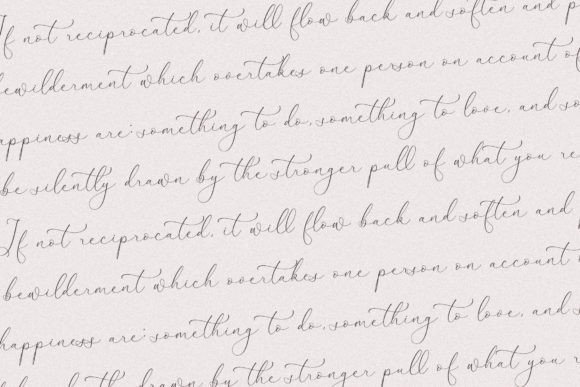 If not reciprocated, it will flow back and soften and p
bewilderment which overtakes one person on account of
appiness are: something to do, something to love, and so
be silently drawn by the stronger pull of what you re
If not reciprocated, it will flow back and soften and
bewilderment which overtakes one person on account
happiness are: something to do, something to love, and
be silently drawn by the stronger pull of what you r